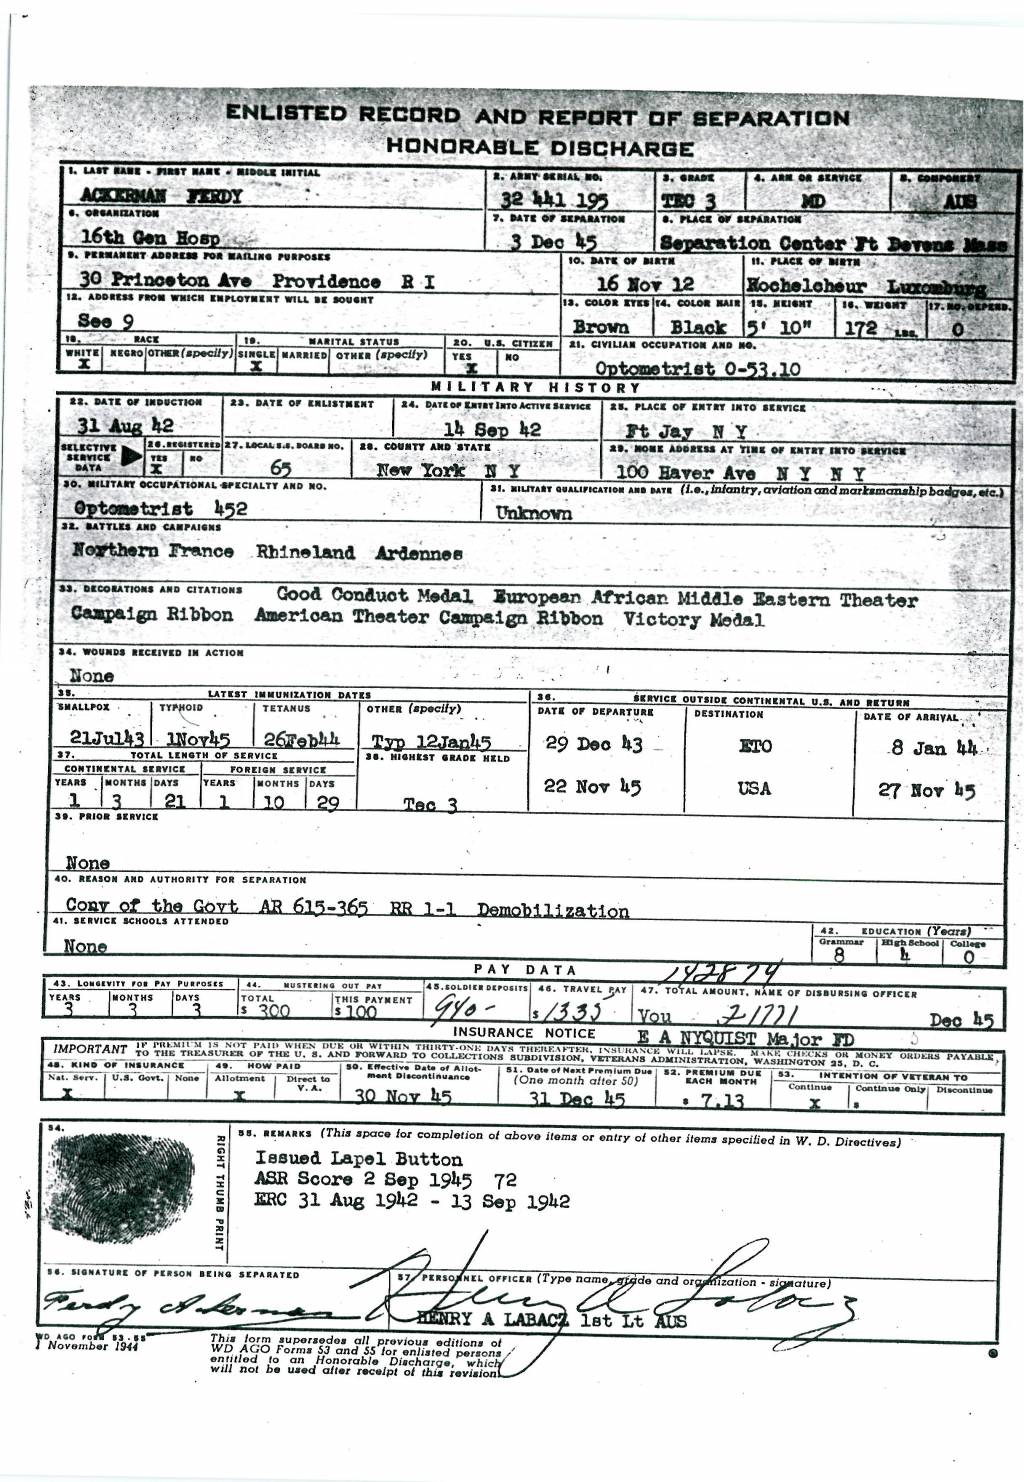 ENLISTED RECORD AND REPORT OF SEPARATION
HONORABLE DISCHARGE
1. LAST NAME - FIRST NAME - MIDDLE INITIAL 2. ARMY SERIAL NO. 3. GRADE 4. ARM OR SERVICE 5. COMPONENT
ACKERMAN FERDY 32 441 195 TEC 3 MD AUS
6. ORGANIZATION 7. DATE OF SEPARATION 8. PLACE OF SEPARATION
16th Gen Hosp 3 Dec 45 Separation Center Ft Devens Mass
9. PERMANENT ADDRESS FOR MAILING PURPOSES 10. DATE OF BIRTH 11. PLACE OF BIRTH
30 Princeton Ave Providence R I 16 Nov 12 Hochelcheur Luxemburg
12. ADDRESS FROM WHICH EMPLOYMENT WILL BE SOUGHT 13. COLOR EYES 14. COLOR HAIR 15. HEIGHT 16. WEIGHT 17. NO. DEPEND.
See 9 Brown Black 5' 10" 172 LBS. 0
18. RACE 19. MARITAL STATUS 20. U.S. CITIZEN 21. CIVILIAN OCCUPATION AND NO.
WHITE NEGRO OTHER (specify) SINGLE MARRIED OTHER (specify) YES NO
X X X Optometrist 0-53.10
MILITARY HISTORY
22. DATE OF INDUCTION 23. DATE OF ENLISTMENT 24. DATE OF ENTRY INTO ACTIVE SERVICE 25. PLACE OF ENTRY INTO SERVICE
31 Aug 42 14 Sep 42 Ft Jay N Y
SELECTIVE SERVICE DATA 26. REGISTERED 27. LOCAL S.S. BOARD NO. 28. COUNTY AND STATE 29. HOME ADDRESS AT TIME OF ENTRY INTO SERVICE
YES NO
X 65 New York N Y 100 Haver Ave N Y N Y
30. MILITARY OCCUPATIONAL SPECIALTY AND NO. 31. MILITARY QUALIFICATION AND DATE (i.e., infantry, aviation and marksmanship badges, etc.)
Optometrist 452 Unknown
32. BATTLES AND CAMPAIGNS
Northern France Rhineland Ardennes
33. DECORATIONS AND CITATIONS Good Conduct Medal European African Middle Eastern Theater
Campaign Ribbon American Theater Campaign Ribbon Victory Medal
34. WOUNDS RECEIVED IN ACTION
None
35. LATEST IMMUNIZATION DATES 36. SERVICE OUTSIDE CONTINENTAL U.S. AND RETURN
SMALLPOX TYPHOID TETANUS OTHER (specify) DATE OF DEPARTURE DESTINATION DATE OF ARRIVAL
21Jul43 1Nov45 26Feb44 Typ 12Jan45 29 Dec 43 ETO 8 Jan 44
37. TOTAL LENGTH OF SERVICE 38. HIGHEST GRADE HELD
CONTINENTAL SERVICE FOREIGN SERVICE
YEARS MONTHS DAYS YEARS MONTHS DAYS 22 Nov 45 USA 27 Nov 45
1 3 21 1 10 29 Tec 3
39. PRIOR SERVICE
None
40. REASON AND AUTHORITY FOR SEPARATION
Conv of the Govt AR 615-365 RR 1-1 Demobilization
41. SERVICE SCHOOLS ATTENDED 42. EDUCATION (Years)
Grammar High School College
None 8 4 0
PAY DATA 142874
43. LONGEVITY FOR PAY PURPOSES 44. MUSTERING OUT PAY 45. SOLDIER DEPOSITS 46. TRAVEL PAY 47. TOTAL AMOUNT, NAME OF DISBURSING OFFICER
YEARS MONTHS DAYS TOTAL THIS PAYMENT
3 3 3 $ 300 $ 100 940- $ 1335 Vou 21771 Dec 45
INSURANCE NOTICE E A NYQUIST Major FD
IMPORTANT IF PREMIUM IS NOT PAID WHEN DUE OR WITHIN THIRTY-ONE DAYS THEREAFTER, INSURANCE WILL LAPSE. MAKE CHECKS OR MONEY ORDERS PAYABLE
TO THE TREASURER OF THE U. S. AND FORWARD TO COLLECTIONS SUBDIVISION, VETERANS ADMINISTRATION, WASHINGTON 25, D. C.
48. KIND OF INSURANCE 49. HOW PAID 50. Effective Date of Allotment Discontinuance 51. Date of Next Premium Due (One month after 50) 52. PREMIUM DUE EACH MONTH 53. INTENTION OF VETERAN TO
Nat. Serv. U.S. Govt. None Allotment Direct to V. A. Continue Continue Only Discontinue
X X 30 Nov 45 31 Dec 45 $ 7.13 X $
54. RIGHT THUMB PRINT 55. REMARKS (This space for completion of above items or entry of other items specified in W. D. Directives)
Issued Lapel Button
ASR Score 2 Sep 1945 72
ERC 31 Aug 1942 - 13 Sep 1942
56. SIGNATURE OF PERSON BEING SEPARATED 57. PERSONNEL OFFICER (Type name, grade and organization - signature)
Ferdy Ackerman Henry A Labacz
HENRY A LABACZ 1st Lt AUS
WD AGO FORM 53-55
1 November 1944
This form supersedes all previous editions of
WD AGO Forms 53 and 55 for enlisted persons
entitled to an Honorable Discharge, which
will not be used after receipt of this revision.